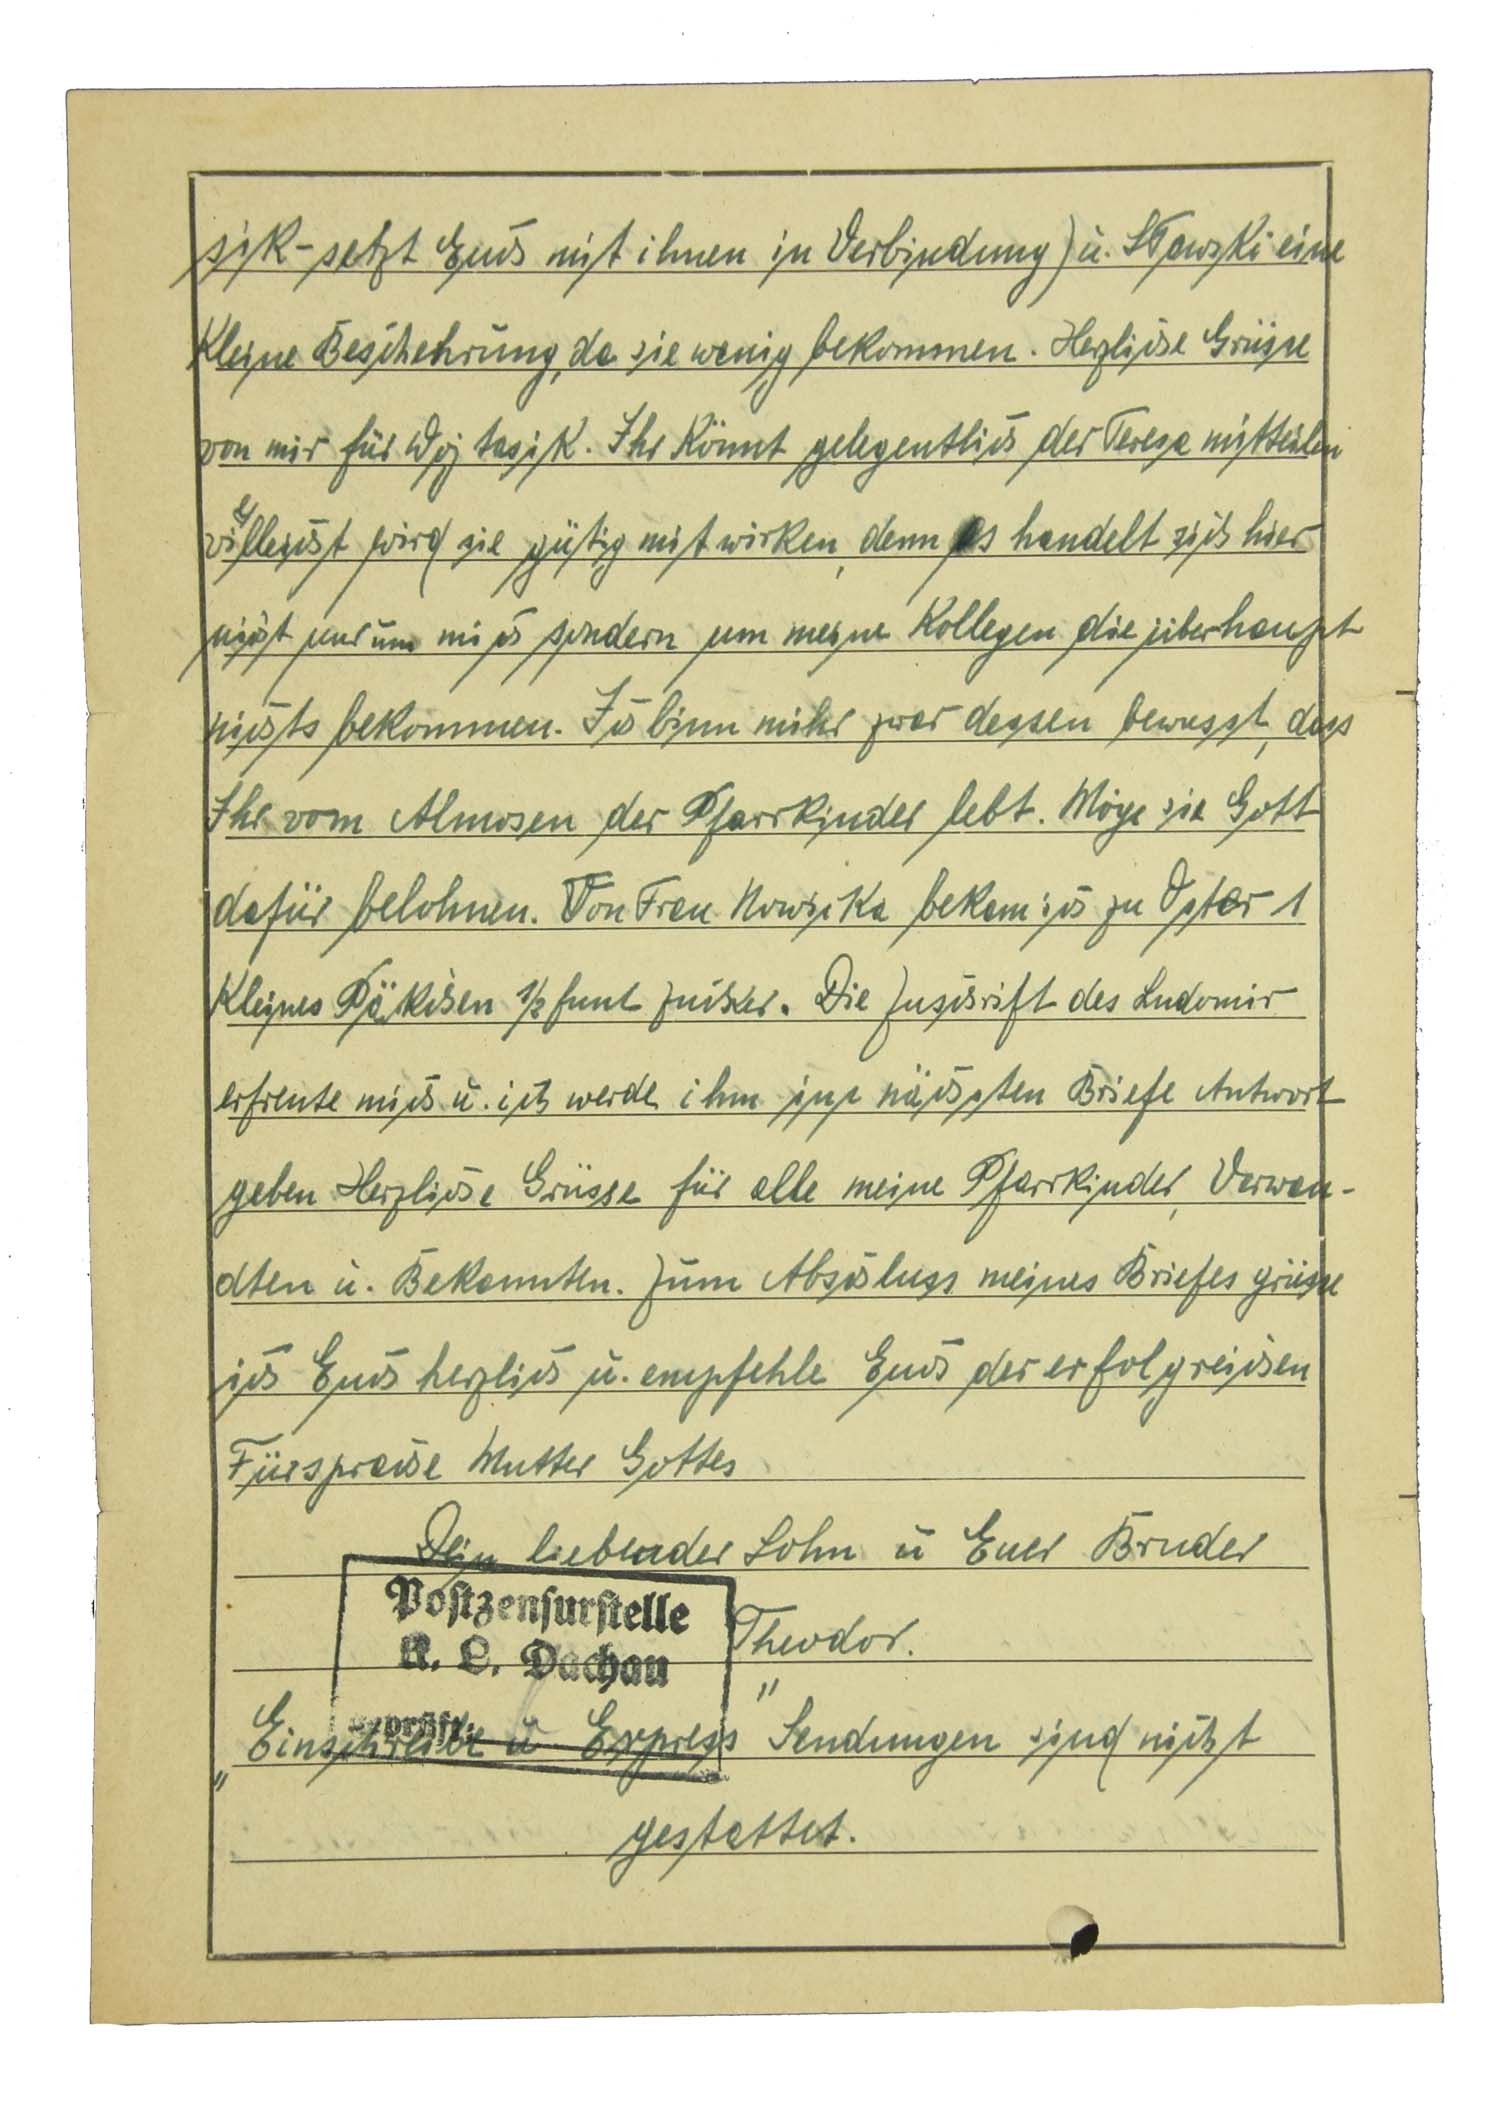 sik - setzt Euch mit ihnen in Verbindung) u. Stawski eine
kleine Beschehrung, da sie wenig bekommen. Herzliche Grüsse
von mir für Wojtasik. Ihr könnt gelegentlich der Teresa mitteilen
villeicht wird sie gütig mitwirken, denn es handelt sich hier
nicht nur um mich sondern um meine Kollegen die überhaupt
nichts bekommen. Ich binn mihr zwar dessen bewusst, dass
Ihr vom Almosen der Pfarrkinder lebt. Möge sie Gott
dafür belohnen. Von Frau Nowicka bekam ich zu Oster 1
kleines Päkchen ½ funt Zucker. Die Zuschrift des Ludomir
erfreute mich u. ich werde ihm im nächsten Briefe Antwort
geben Herzliche Grüsse für alle meine Pfarrkinder, Verwan-
dten u. Bekannten. Zum Abschluss meines Briefes grüsse
ich Euch herzlich u. empfehle Euch der erfolgreichen
Fürsprache Mutter Gottes
Dein liebender Sohn u Euer Bruder
Postzensurstelle
K. L. Dachau
geprüft:
Theodor.
"Einschreibe u Express" Sendungen sind nicht
gestattet.